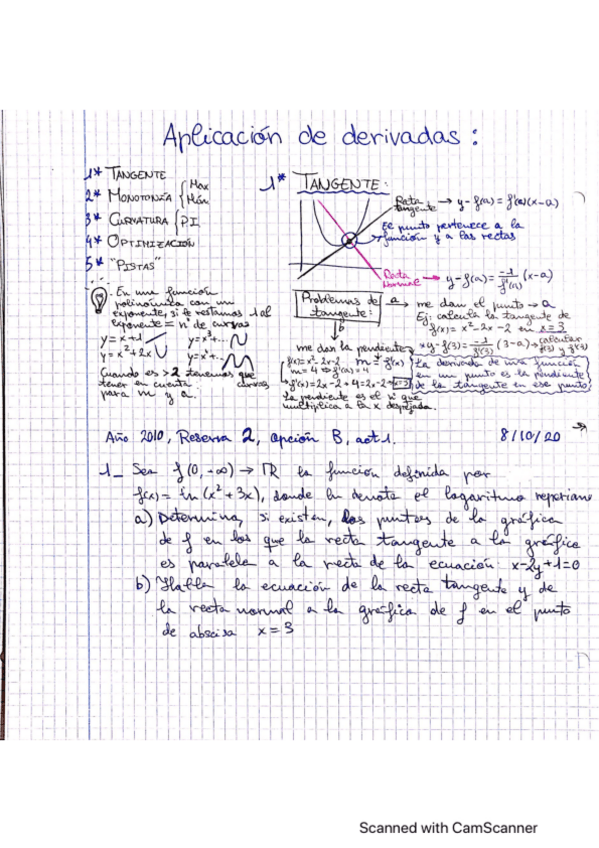 Aplicación de derivadas:
1* TANGENTE
2* MONOTONÍA { Max
Mín
3* CURVATURA { P.I
4* OPTIMIZACIÓN
5* "PISTAS"
En una función
polinómica con un
exponente, si le restamos 1 al
exponente = nº de curvas
y = x+1
y = x²+2x
y = x³+..
y = x⁴+..
Cuando es >2 tenemos que
tener en cuenta curvas
para m y a.
1* TANGENTE:
Recta tangente → y-f(a) = f'(a)(x-a)
Ese punto pertenece a la
función y a las rectas
Recta Normal → y-f(a) = -1/f'(a) (x-a)
Problemas de
tangente:
a → me dan el punto → a
Ej: calcula la tangente de
f(x) = x²-2x-2 en x=3
y-f(3) = -1/f'(3) (3-a) → calcular
f(3) y f'(3)
b
me dan la pendiente
f(x) = x²-2x-2
m = f'(x)
m = 4 → f'(x) = 4
f'(x) = 2x-2 → 4 = 2x-2 → x=3
La pendiente es el nº que
multiplica a la x despejada.
La derivada de una función
en un punto es la pendiente
de la tangente en ese punto
Año 2010, Reserva 2, Opción B, act 1. 8/10/20
1_ Sea f(0,+∞) → ℝ la función definida por
f(x) = ln (x²+3x), donde ln denota el logaritmo neperiano
a) Determina, si existen, los puntos de la gráfica
de f en los que la recta tangente a la gráfica
es paralela a la recta de la ecuación x-2y+1=0
b) Halla la ecuación de la recta tangente y de
la recta normal a la gráfica de f en el punto
de abscisa x=3
Scanned with CamScanner